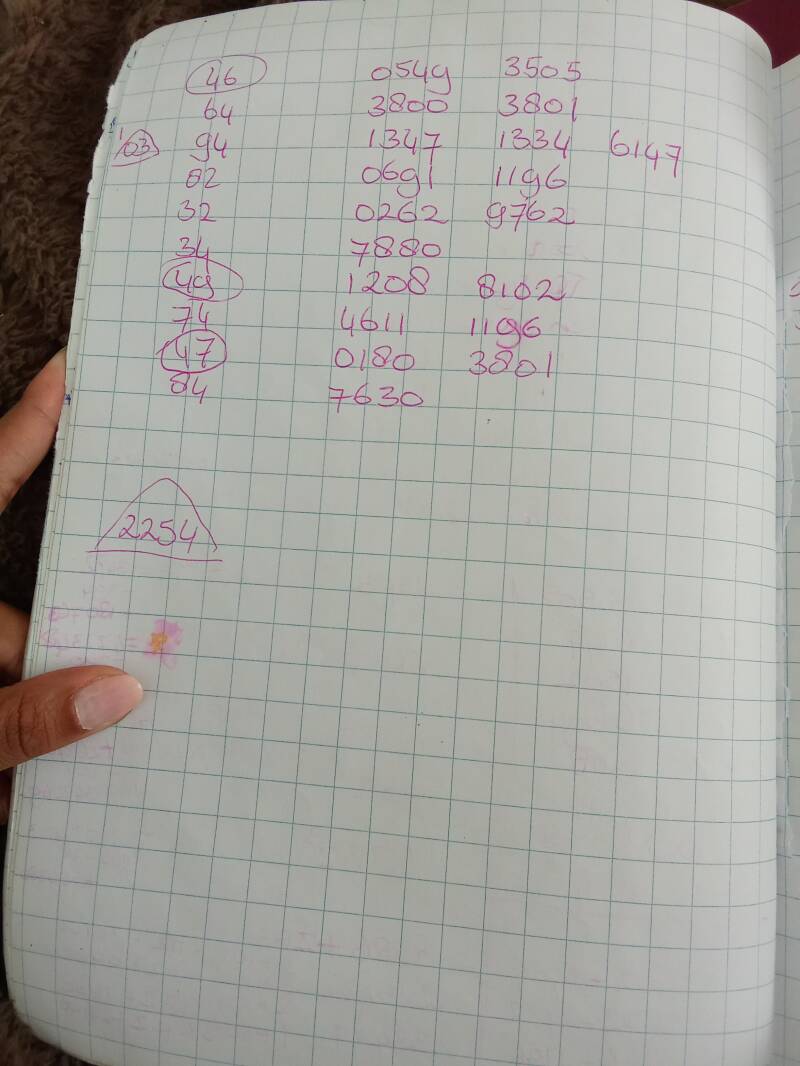 46 0549 3505
64 3800 3801
03 94 1347 1334 6147
02 0691 1196
32 0262 9762
34 7880
49 1208 8102
74 4611 1196
47 0180 3801
84 7630
2254